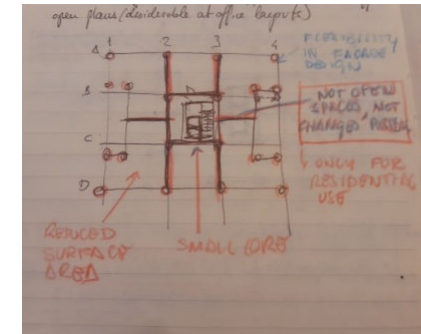 open plans (desiderable at office layouts)
1 2 3 4
A
B
C
D
FLEXIBILITY
IN FACADE
DESIGN
NOT OPEN
SPACES, NOT
CHANGES
ONLY FOR
RESIDENTIAL
USE
REDUCED
SURFACE
AREA
SMALL CORE